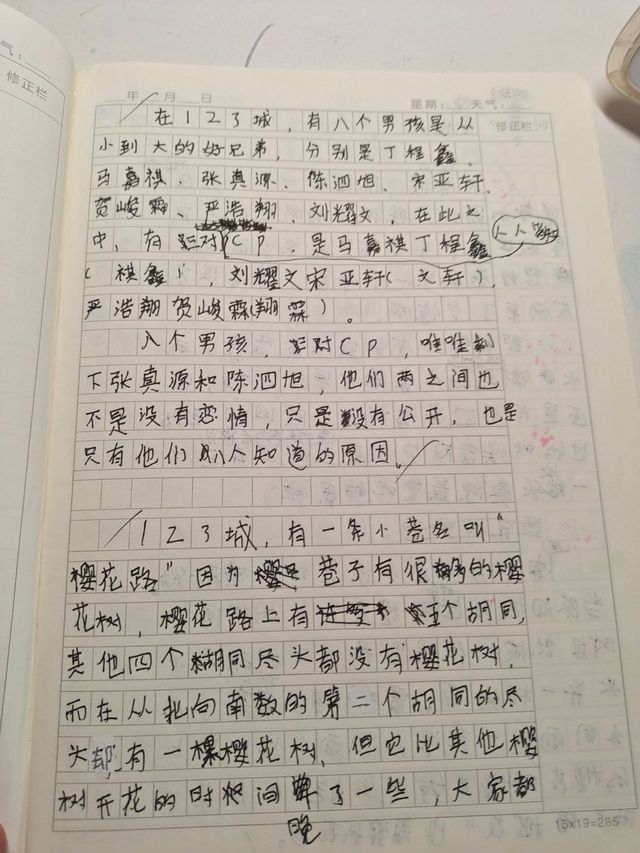 气：
修正栏
年 月 日 星期： 天气：
修正栏
在123城，有八个男孩是从
小到大的好兄弟，分别是丁程鑫、
马嘉祺、张真源、陈泗旭、宋亚轩、
贺峻霖、严浩翔、刘耀文，在此之
中，有三对CP，是马嘉祺丁程鑫 人人皆知
（祺鑫），刘耀文宋亚轩（文轩），
严浩翔贺峻霖（翔霖）。
八个男孩，三对CP，唯唯剩
下张真源和陈泗旭，他们两之间也
不是没有恋情，只是没有公开，也是
只有他们八人知道的原因。
123城，有一条小巷名叫“
樱花路”因为巷子有很多的樱
花树，樱花路上有五个胡同，
其他四个胡同尽头都没有樱花树，
而在从北向南数的第二个胡同的尽
头却有一棵樱花树，但它比其他樱
树开花的时间晚了一些，大家都
15x19=285